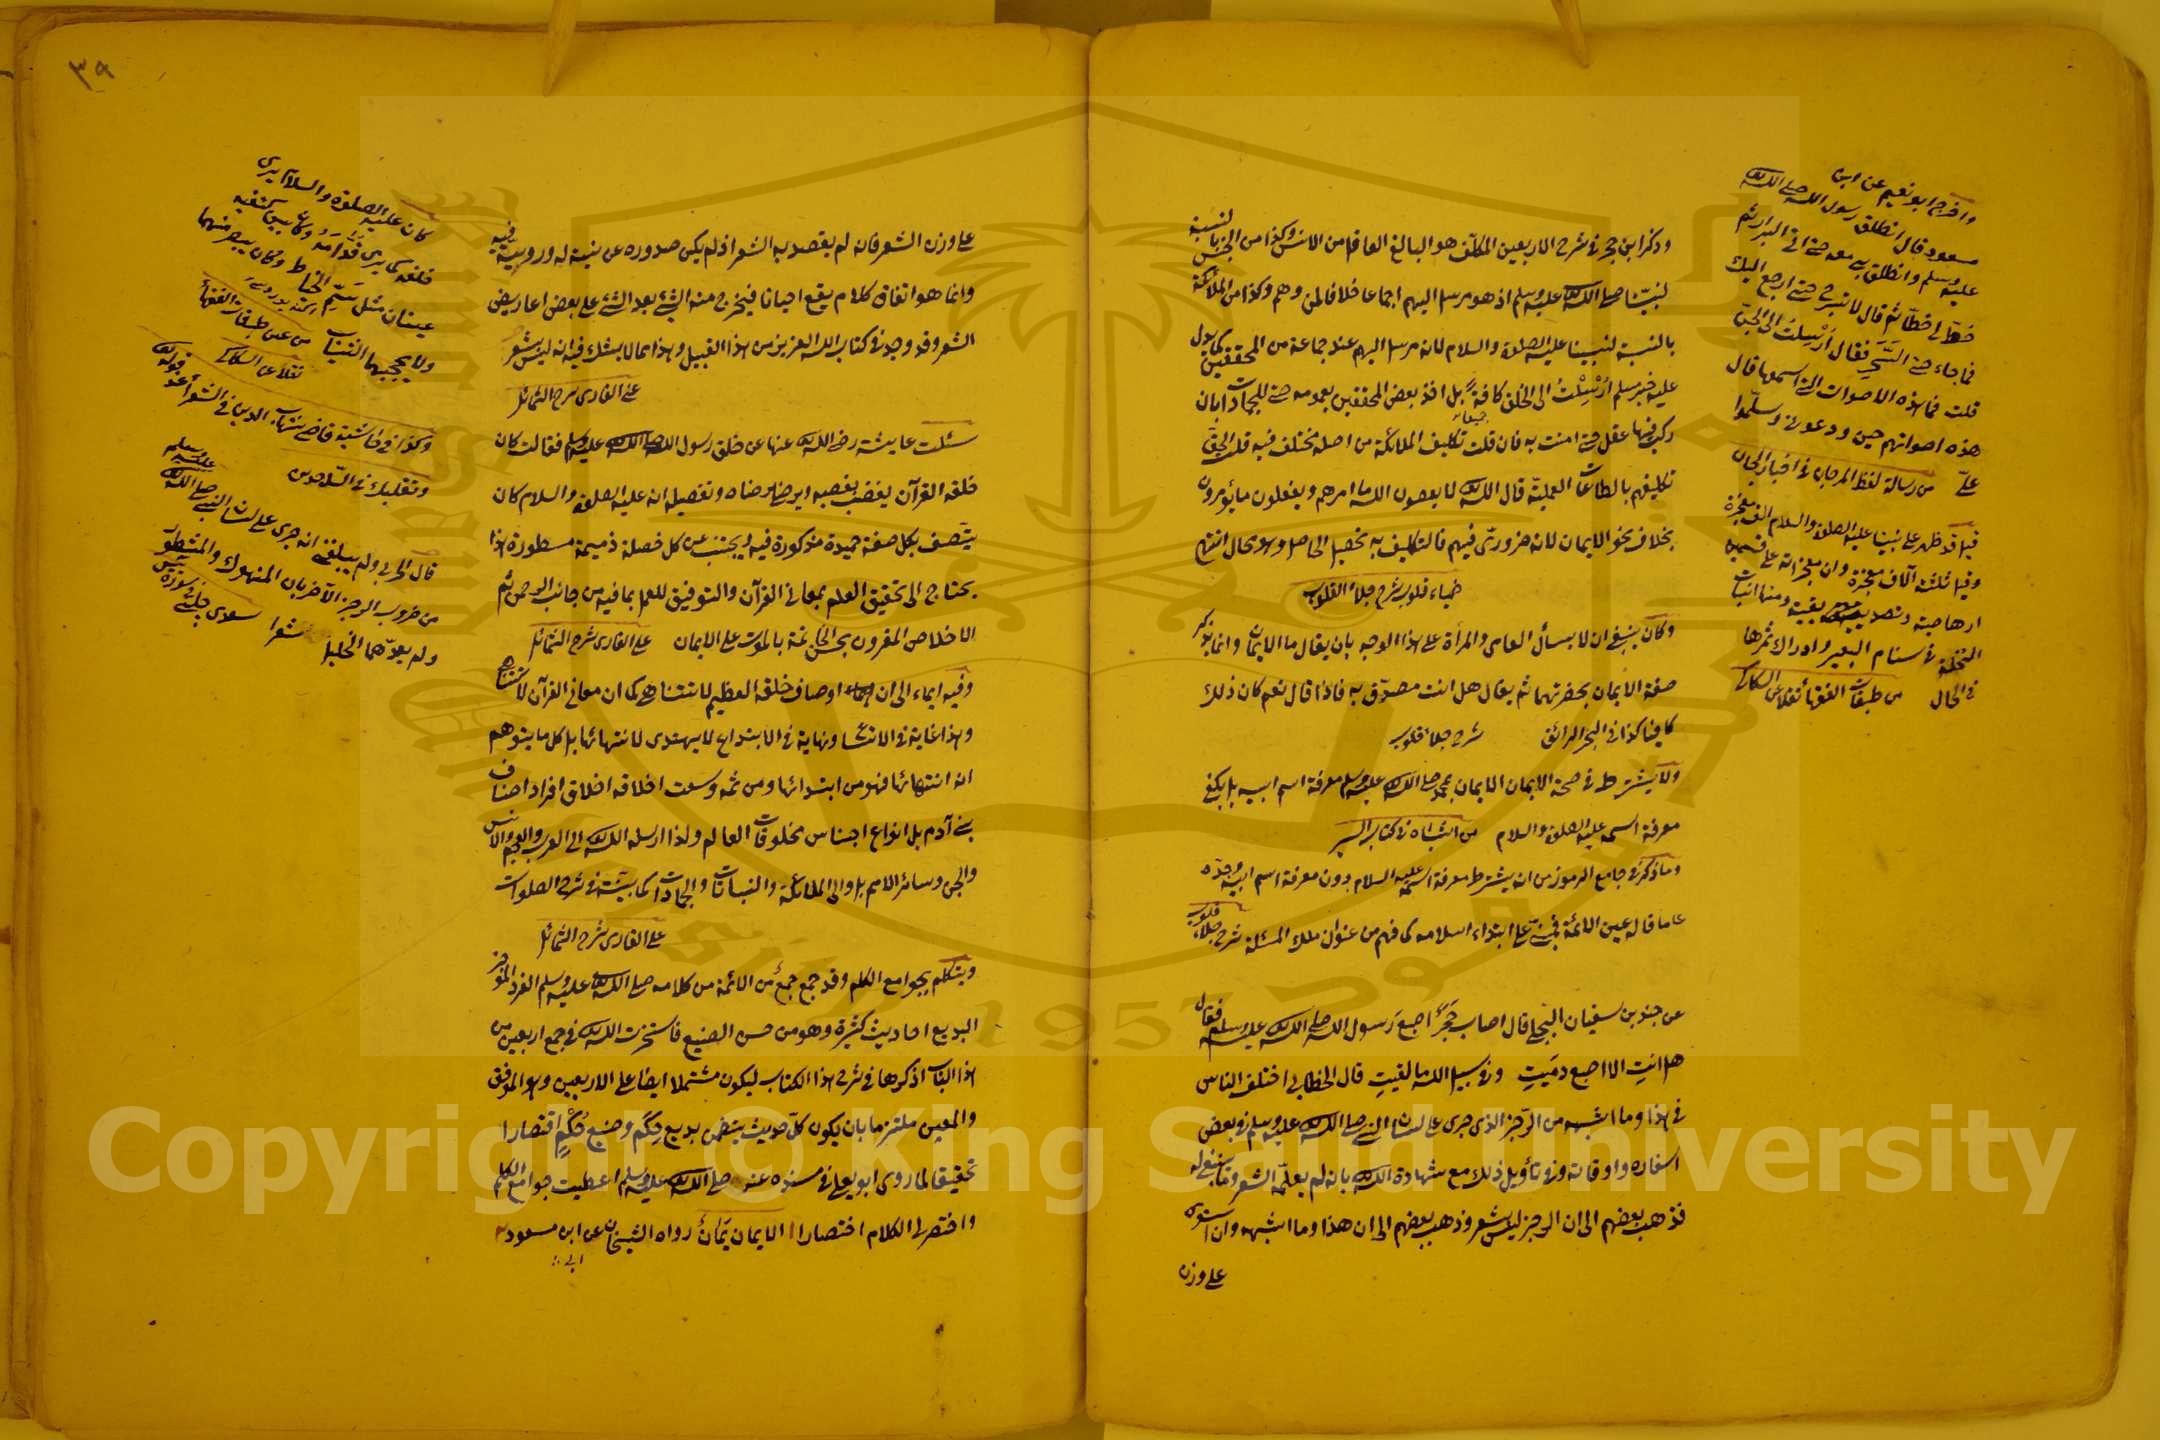 وذكر ابن حجر في شرح الاربعين المكلف هو البالغ العاقل من الانس وكذا من الجن بالنسبة
لنبينا صلى الله عليه وسلم اذ هو مرسل اليهم اجماعا خلافا لمن وهم وكذا من الملائكة
بالنسبة لنبينا عليه الصلوة والسلام لانه مرسل اليهم عند جماعة من المحققين كما يدل
عليه خبر مسلم ارسلت الى الخلق كافة بل اخذ بعض المحققين بعمومه حتى للجمادات بان
ركب فيها عقل حتى امنت به فان قلت تكليف الملائكة من اصله مختلف فيه قلت الحق
تكليفهم بالطاعات العملية قال الله لا يعصون الله ما امرهم ويفعلون ما يؤمرون
بخلاف نحو الايمان لانه ضروري فيهم فالتكليف به تحصيل الحاصل وهو محال انتهى
ضياء قلوب شرح جلاء القلوب
وكان ينبغي ان لا يسأل العامي والمرأة على هذا الوجه بان يقال ما الايمان وانما يذكر
صفة الايمان بحضرتهما ثم يقال هل انت مصدق به فاذا قال نعم كان ذلك
كافيا كذا في البحر الرائق شرح جلاء قلوب
ولا يشترط في صحة الايمان الايمان بمحمد صلى الله عليه وسلم معرفة اسم ابيه بل يكفي
معرفة اسمه عليه الصلوة والسلام من اشباه في كتاب السير
وما ذكر في جامع الرموز من انه يشترط معرفة اسمه عليه السلام دون معرفة اسم ابيه وجده
على ما قاله عين الائمة فمبني على ابتداء اسلامه كما فهم من عنوان ملك المسئلة شرح جلاء قلوب
عن جندب بن سفيان البجلي قال اصاب حجر اصبع رسول الله صلى الله عليه وسلم فقال
هل انت الا اصبع دميت وفي سبيل الله ما لقيت قال الخطابي اختلف الناس
في هذا وما اشبهه من الرجز الذي جرى على لسان النبي صلى الله عليه وسلم في بعض
اسفاره واوقاته وفي تأويل ذلك مع شهادة الله بانه لم يعلمه الشعر وما ينبغي له
فذهب بعضهم الى ان الرجز ليس بشعر وذهب بعضهم الى ان هذا وما اشبهه وان استوى
على وزن
واخرج ابو نعيم عن ابن
مسعود قال انطلق رسول الله صلى الله
عليه وسلم وانطلق بي معه حتى اتى البراز ثم
خط لي خطا ثم قال لا تبرح حتى ارجع اليك
فما جاء حتى السحر فقال ارسلت الى الجن
قلت فما هذه الاصوات التي اسمعها قال
هذه اصواتهم حين ودعوني وسلموا
علي من رسالة لقط المرجان في اخبار الجان
قيل قد ظهر على نبينا عليه الصلوة والسلام الف معجزة
وقيل ثلثة آلاف معجزة وان معجزاته على قسمين
ارهاصية وتصديقية ومنها انبات
النخلة في سنام البعير وادراك ثمرها
في الحال من طبقات الفقهاء نقلا عن السكاكي
٣٩
على وزن الشعر فانه لم يقصد به الشعر اذ لم يكن صدوره عن نية له وروية فيه
وانما هو اتفاق كلام يقع احيانا فيخرج منه الشيء بعد الشيء على بعض اعاريض
الشعر وقد وجد في كتاب الله العزيز من هذا القبيل وهذا مما لا يشك فيه انه ليس بشعر
على القاري شرح الشمائل
سئلت عايشة رضى الله عنها عن خلق رسول الله صلى الله عليه وسلم فقالت كان
خلقه القرآن يغضب بغضبه ويرضا برضاه وتفصيله انه عليه الصلوة والسلام كان
يتصف بكل صفة حميدة مذكورة فيه ويجتنب عن كل خصلة ذميمة مسطورة هذا
يحتاج الى تحقيق العلم بمعاني القرآن والتوفيق للعمل بما فيه من جانب الرحمن ثم
الاخلاص المقرون بحسن الخاتمة بالموت على الايمان على القاري شرح الشمائل
وفيه ايماء الى ان اوصاف خلقه العظيم لا تتناهى كما ان معاني القرآن لا تتناهى
وهذا غاية في الاتساع ونهاية في الابتداع لا يهتدى لانتهائها بل كل ما يتوهم
انه انتهائها فهو من ابتدائها ومن ثمه وسعت اخلاقه اخلاق افراد اصناف
بني آدم بل انواع اجناس مخلوقات العالم ولذا ارسله الله الى العرب والعجم والانس
والجن وسائر الامم بل والى الملائكة والنباتات والجمادات كما بينته في شرح الصلوات
على القاري شرح الشمائل
ويتكلم بجوامع الكلم وقد جمع جمع من الائمة من كلامه صلى الله عليه وسلم الفرد الموجز
البديع احاديث كثيرة وهو من حسن الصنيع فاستخرت الله في جمع اربعين من
هذا الباب اذكرها في شرح هذا الكتاب ليكون مشتملا ايضا على الاربعين وهو الموفق
والمعين ملتزما بان يكون كل حديث يتضمن بديع حكم وضيع حكم اقتصارا
تحقيقا لما روى ابو يعلى في مسنده عنه صلى الله عليه وسلم اعطيت جوامع الكلم
واختصر لي الكلام اختصارا الايمان يمان رواه الشيخان عن ابن مسعود
كان عليه الصلوة والسلام يرى
خلفه كما يرى قدامه وكان بين كتفيه
عينان مثل سم الخياط وكان يبصر منهما
ولا يحجبهما الثياب من عين طبقات الفقهاء
نقلا عن السكاكي
وكذا في حاشية قاضي شهاب الدين في الشعراء عند قوله
وتقلبك في الساجدين
قال الحربي ولم يبلغني انه جرى على لسان النبي صلى الله عليه وسلم
من ضروب الرجز الآخر بان المنهوك والمشطور
ولم يعدهما الخليل شعرا سعدي چلبي في سورة يس